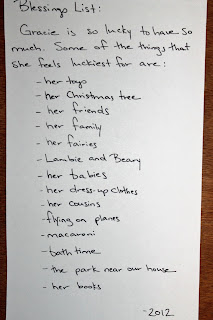 Blessings List:
Gracie is so lucky to have so
much. Some of the things that
she feels luckiest for are:
- her toys
- her Christmas tree
- her friends
- her family
- her fairies
- Lambie and Beary
- her babies
- her dress-up clothes
- her cousins
- flying on planes
- macaroni
- bath time
- the park near our house
- her books
- 2012